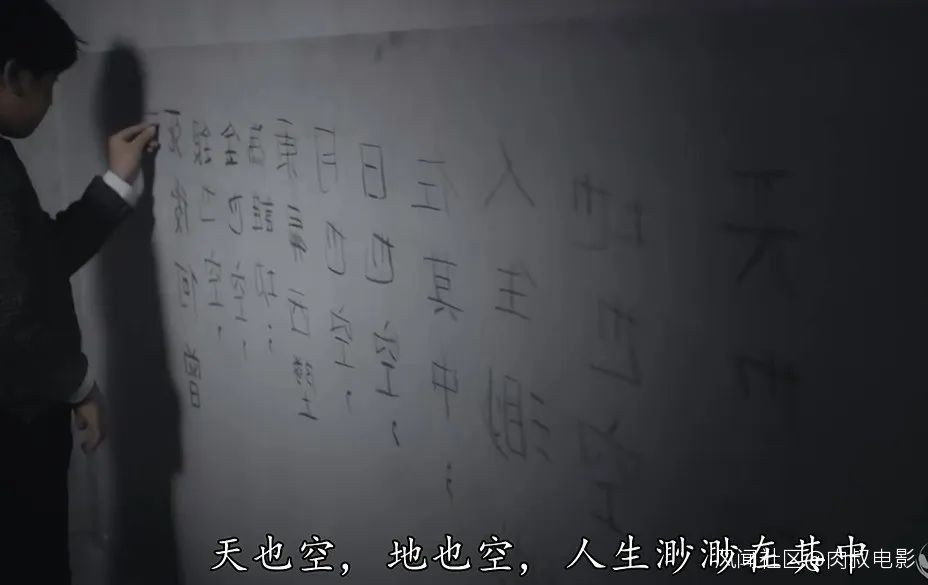 天也
地也空
人生渺
在其中；
日也空，
月也空，
東昇西墜
金也空，
銀也空，
死後何曾
天也空，地也空，人生渺渺在其中
风闻社区@肉叔电影